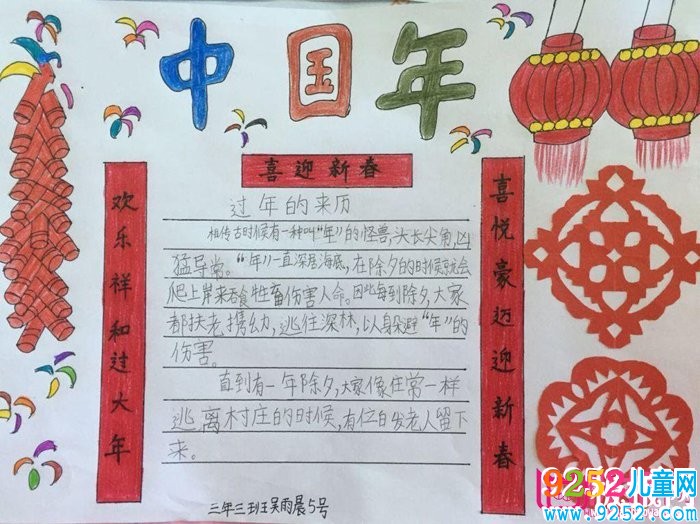 中国年
喜迎新春
欢乐祥和过大年
喜悦豪迈迎新春
过年的来历
相传古时候有一种叫“年”的怪兽，头长尖角，凶
猛异常。“年”一直深居海底，在除夕的时候就会
爬上岸来吞食牲畜伤害人命。因此每到除夕，大家
都扶老携幼，逃往深林，以躲避“年”的
伤害。
直到有一年除夕，大家像往常一样
逃离村庄的时候，有位白发老人留下
来。
三年三班吴雨晨5号
9252儿童网
www.9252.com